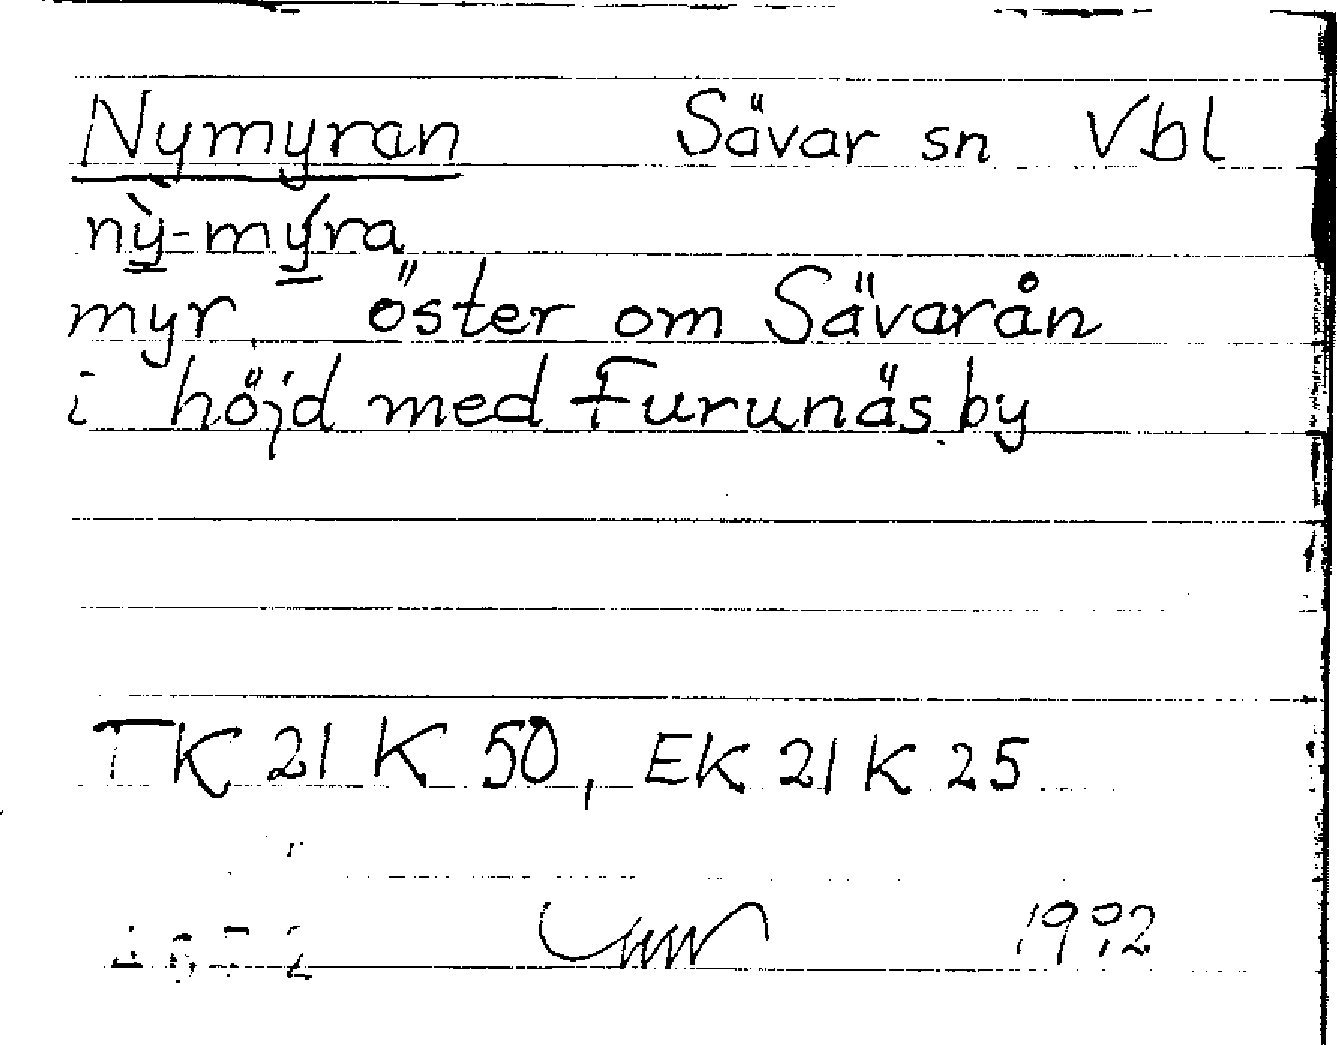 Nymyran Sävar sn Vbl
nỳ-mýra
myr öster om Sävarån
i höjd med Furunäsby
TK 21 K 50, EK 21 K 25
1992